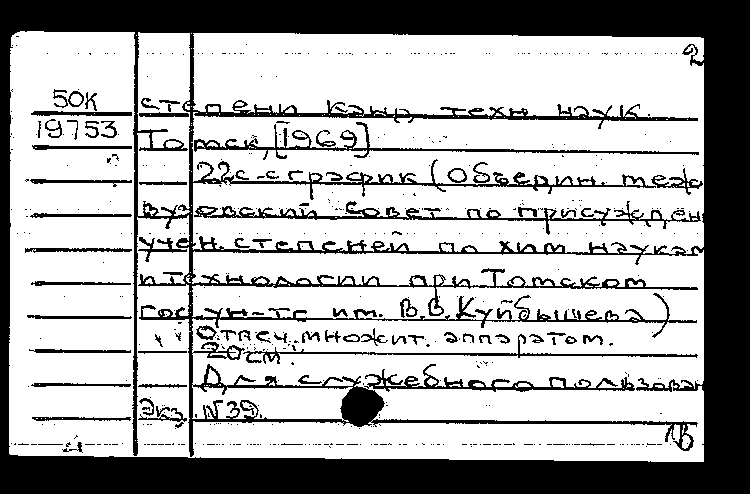 2
50К степени канд техн. наук.
19753 Томск, [1969]
22с. с график (Объедин. меж
вузовский совет по присужден
учен. степеней по хим наукам
и технологии при Томском
гос ун-те им. В.В. Куйбышева)
Отпеч. множит. аппаратом.
20см.
Для служебного пользован
Экз. №39.